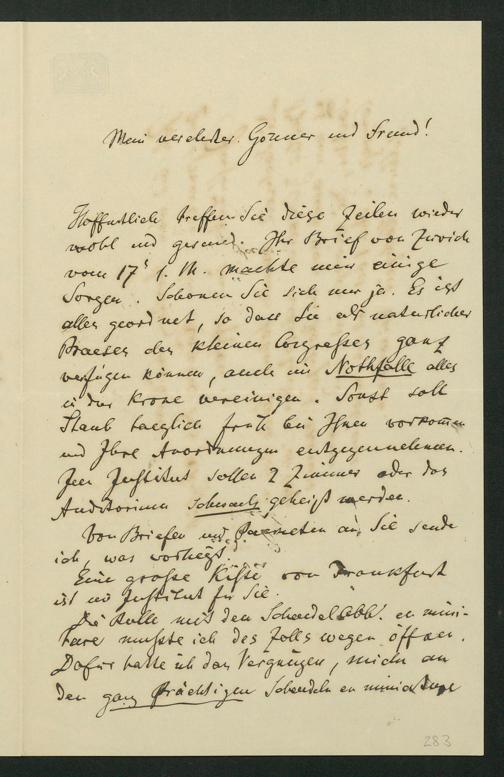 Mein verehrter Gönner und Freund!
Hoffentlich treffen Sie diese Zeilen wieder
wohl und gesund. Ihr Brief von Zürich
vom 17t d. M. machte mir einige
Sorgen. Schonen Sie sich nur ja. Es ist
alles geordnet, so dass Sie als natürlicher
Praeses des kleinen Congresses ganz
verfügen können, auch im Nothfalle alles
in der Krone vereinigen. Sonst soll
Staub taeglich früh bei Ihnen vorkommen
und Ihre Anordnungen entgegennehmen.
Im Institut sollen 2 Zimmer oder das
Auditorium schwach geheizt werden.
Von Briefen und Paqueten an Sie sende
ich, was vorliegt.
Eine große Kiste von Frankfurt
ist im Institut für Sie.
Die Rolle mit den Schaedelabb. en minia-
ture musste ich des Zolls wegen öffnen.
Dafür hatte ich das Vergnügen, mich an
den ganz prächtigen Schaedeln en miniature
283